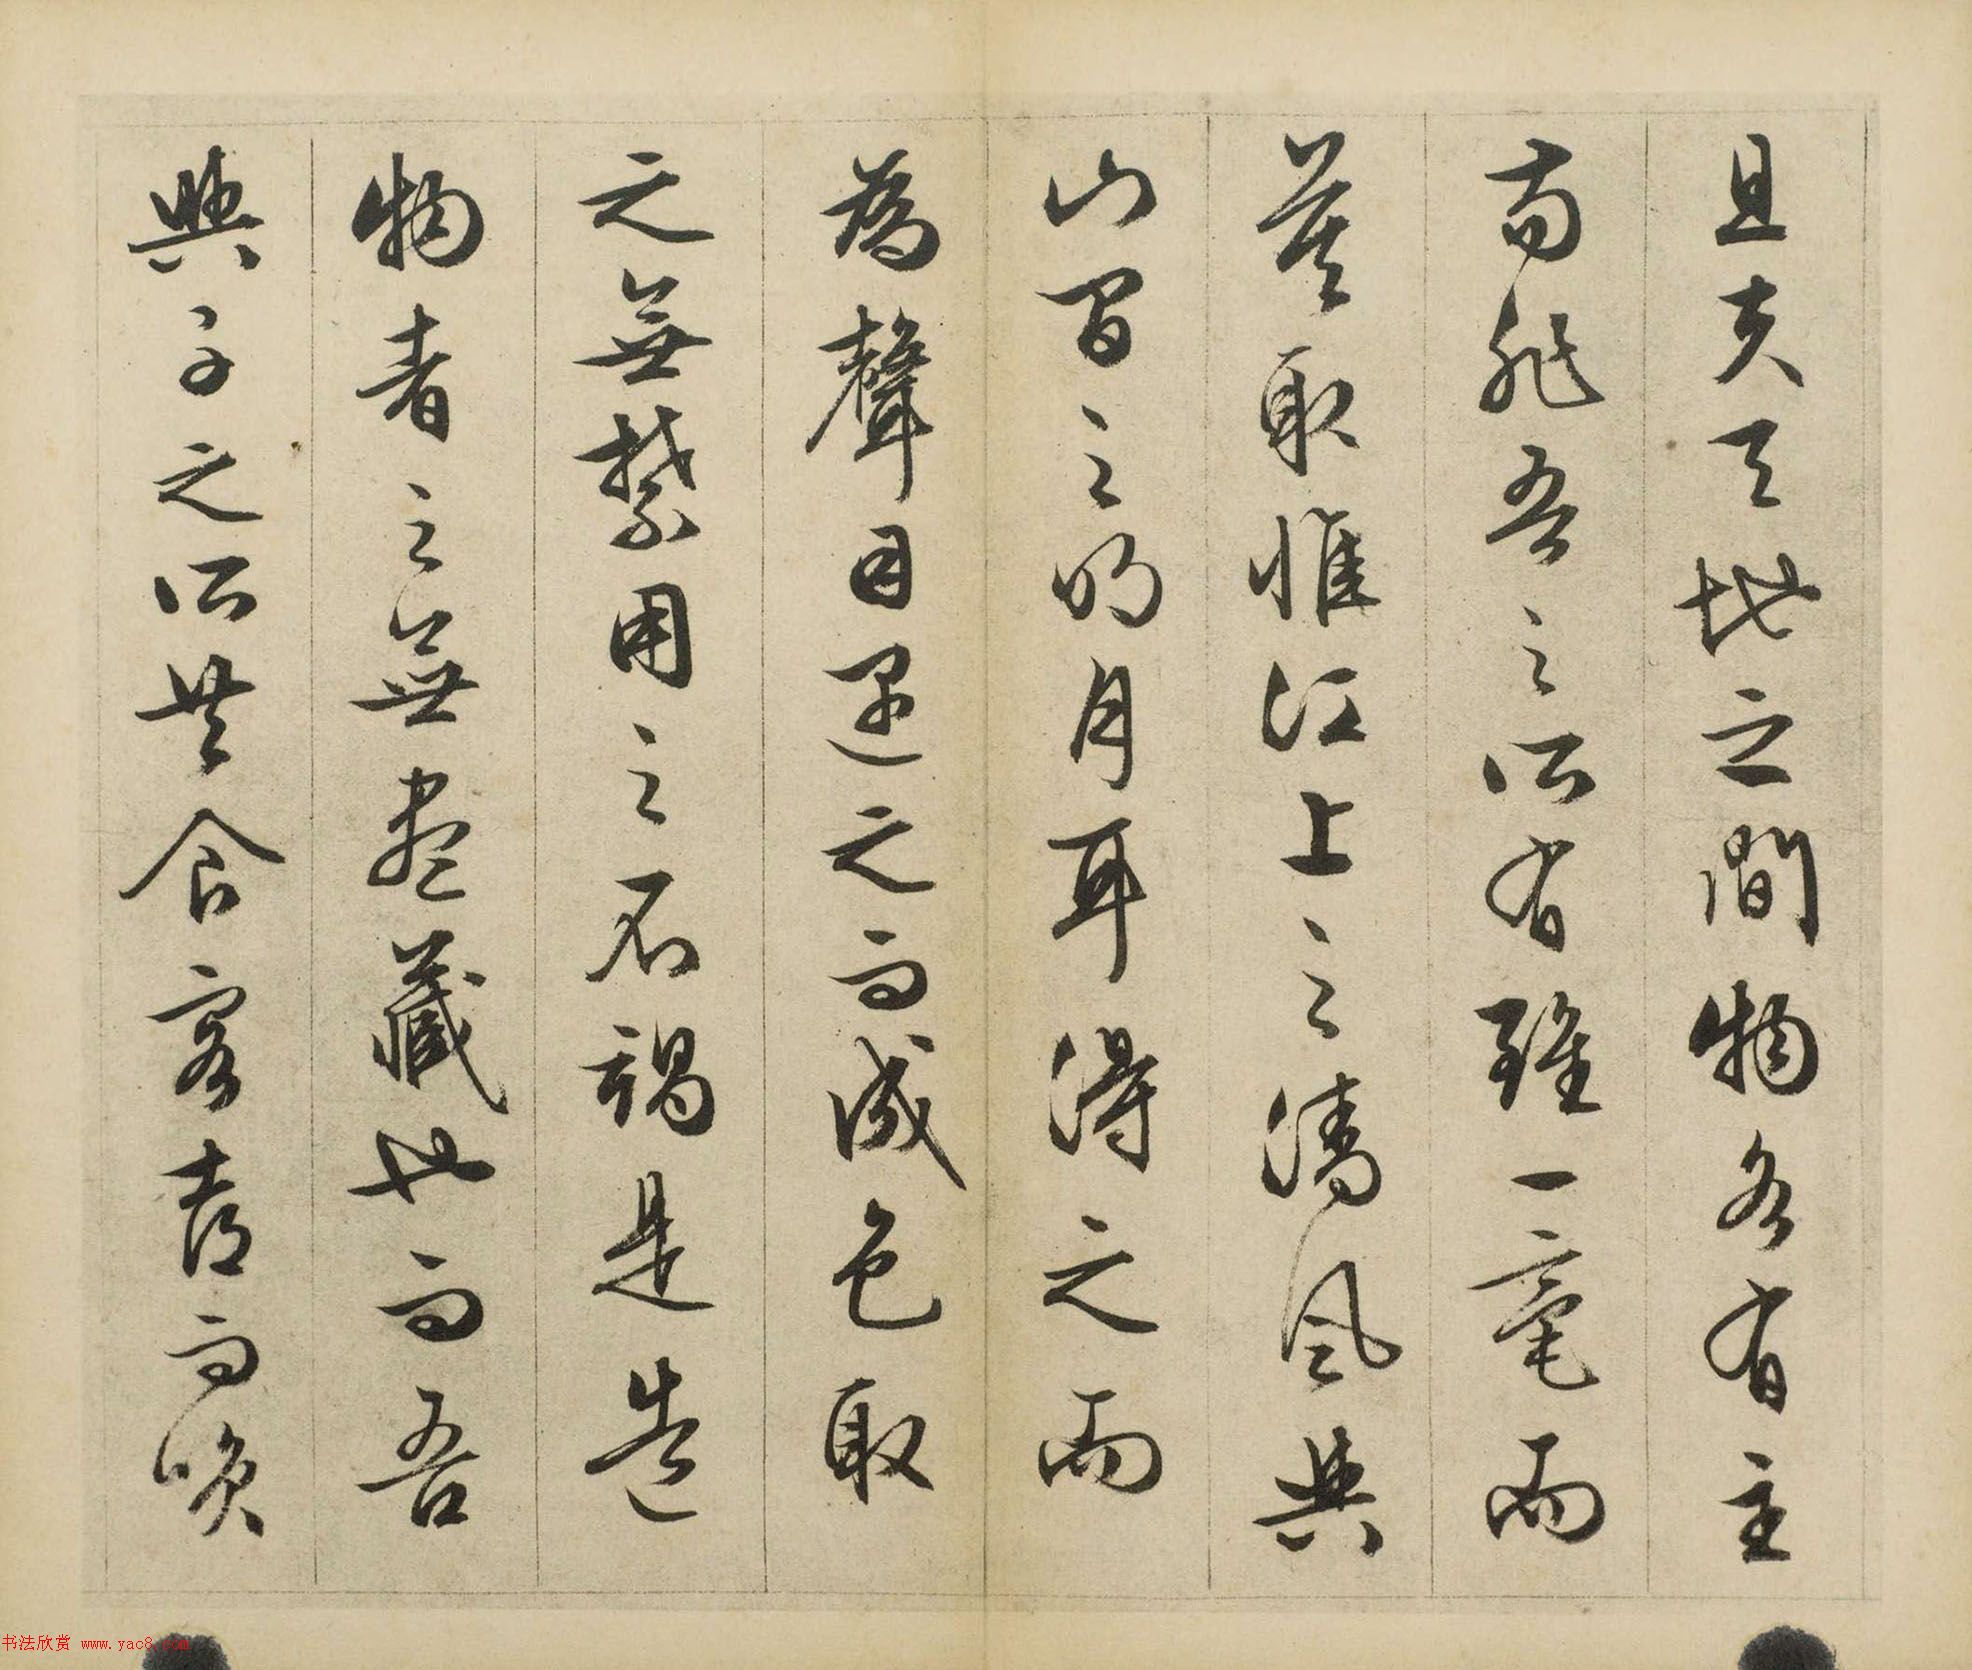 且夫天地之間物各有主
苟非吾之所有雖一毫而
莫取惟江上之清風與
山間之明月耳得之而
為聲目遇之而成色取
之無禁用之不竭是造
物者之無盡藏也而吾
與子之所共食客喜而笑
书法欣赏 www.yac8.com